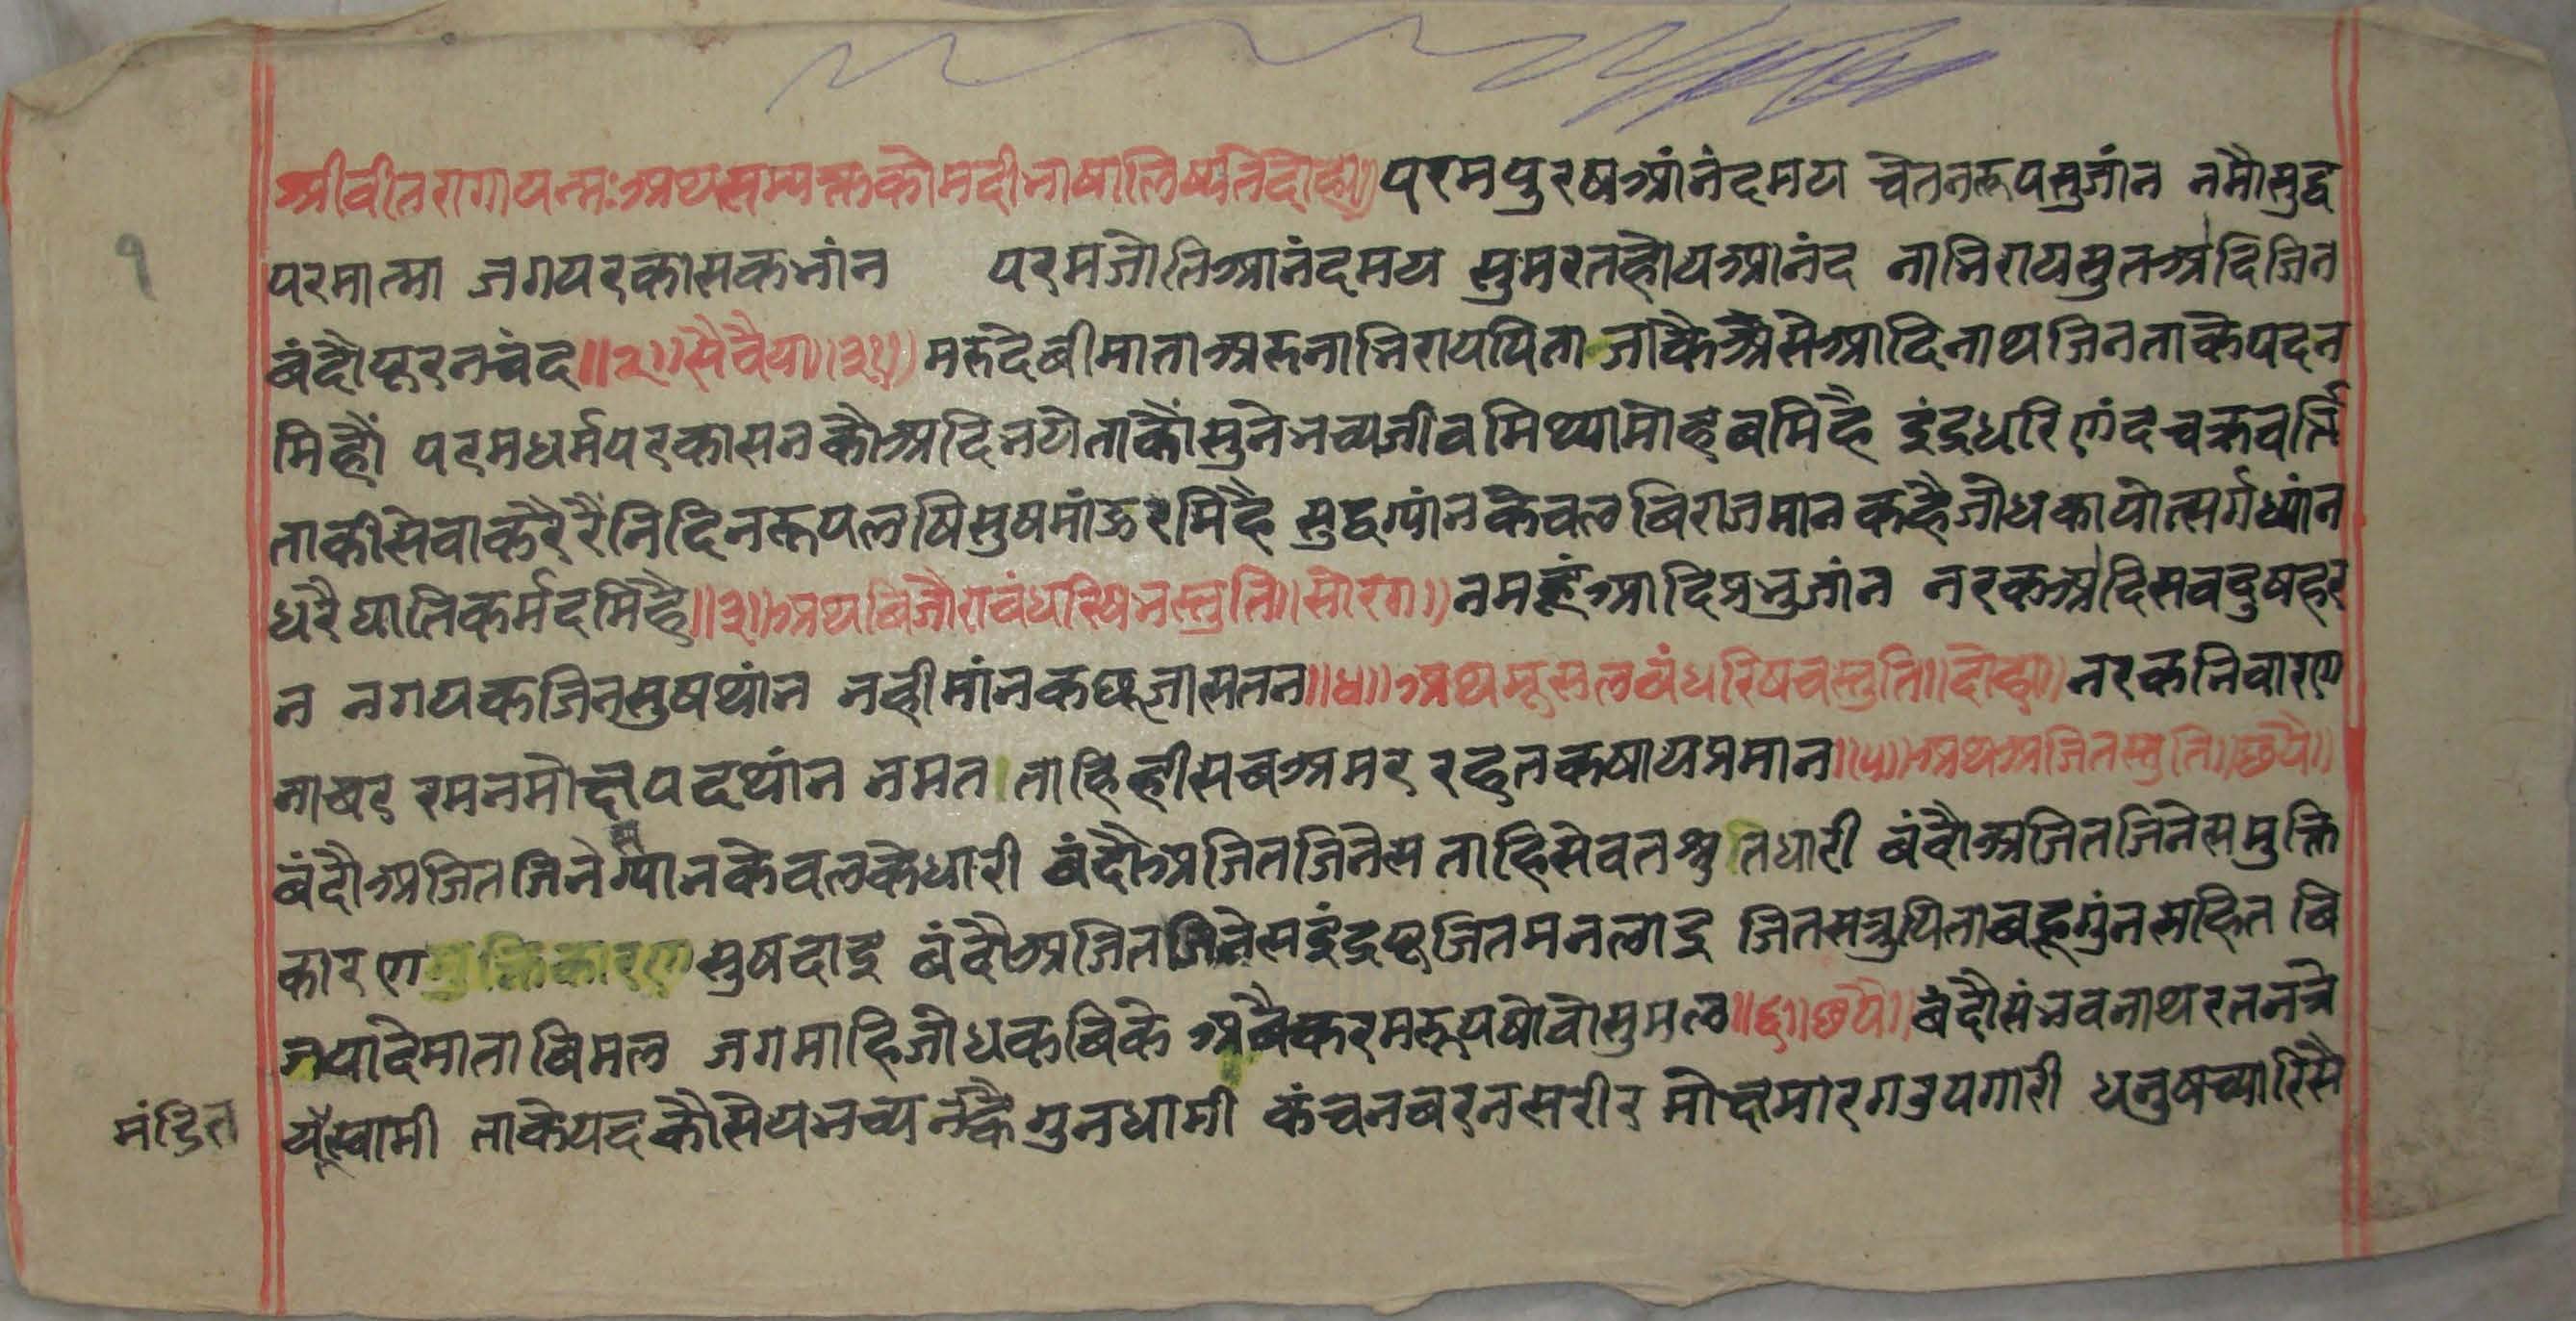 श्रीवीतरागायनमः अथसम्यक्तकोमदीभाषालिष्यतेदोहा॥ परमपुरषआंनंदमय चेतनरूपसुजांन नमौसुद्ध
१
परमात्मा जगपरकासकभांन परमजोतिआनंदमय सुमरतहोयआनंद नाभिरायसुतआदिजिन
बंदौपूरनचंद॥२॥सैवैया॥३१॥ मरुदेबीमाताअरुनाभिरायपिताजाकैअैसेआदिनाथजिनताकेपदन
मिहौं परमधर्मपरकासनकौअदिभयेताकौंसुनेभव्यजीवमिथ्यामोहबमिहै इंद्रधरिणंदचक्रवर्त्ति
ताकीसेवाकरैरैंनिदिनरूपलषिसुषमांऊरमिहै सुद्धग्यांनकेवलबिराजमानकहैजोधकायोत्सर्गध्यांन
धरैघातिकर्मदमिहै॥३॥अथबिजौराबंधस्थिभस्तुति॥सोरठा॥ नमहूंआदिप्रभुजांन नरकआदिसबदुषहर
न नगपकजिनसुषथांन नहीमांनकछूजासतन॥४॥अथमूसलबंधरिषवस्तुति॥दोहा॥ नरकनिवारण
नाबर रमनमोक्षपदथांन नमत ताहिहीसबअमर रहतकषायप्रमान॥५॥अथअजितस्तुति॥छपै॥
बंदौअजितजिनेसग्यानकेवलकेधारी बंदौअजितजिनेस ताहिसेवतश्रुतिधारी बंदौअजितजिनेसमुक्ति
कारणमुक्तिकारणसुषदाइ बंदौअजितजिनेसइंद्रपूजितमनलाइ जितसत्रुपिताबहूगुंनसहित बि
जयादेमाताबिमल जगमाहिजोधकबिके अबैकरमरूपषोवोसुमल॥६॥छपै॥ बंदौसंभवनाथरतनत्रे
मंडित
यूंस्वामी ताकेपदकौसेयभव्य गुनधामी कंचनबरनसरीर मोक्षमारगउपगारी धनुषच्यारिसै